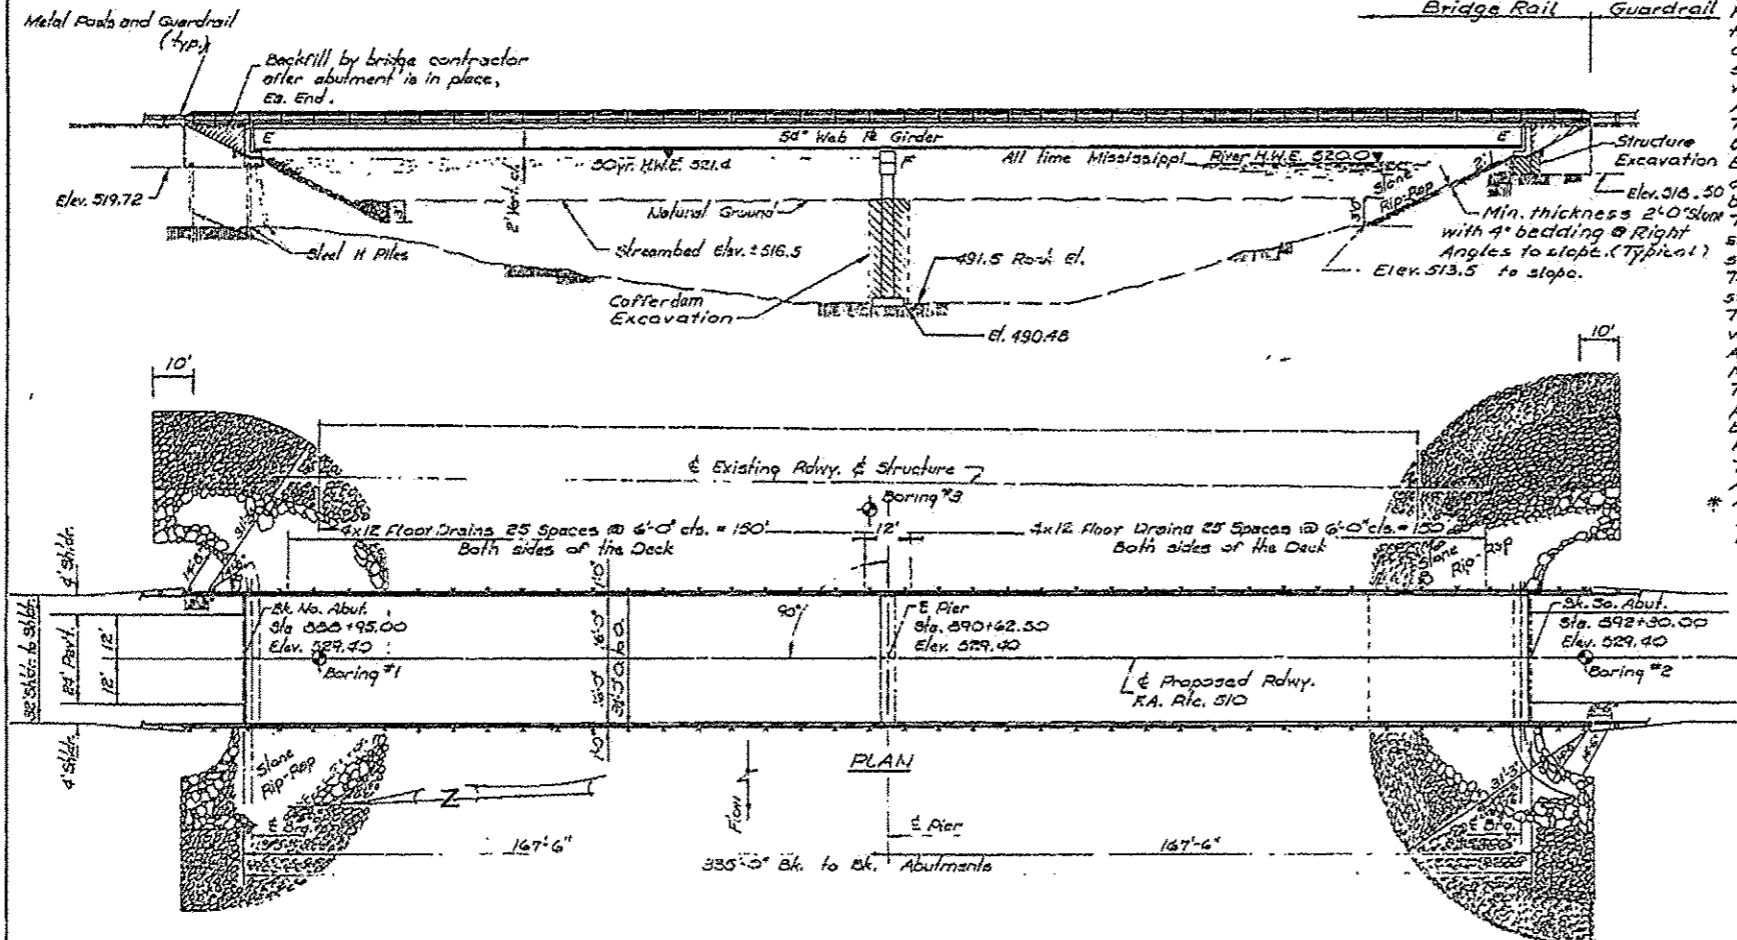 Bridge Rail
Guardrail
Metal Posts and Guardrail
(typ.)
Backfill by bridge contractor
after abutment is in place,
Ea. End.
E
54" Web PL Girder
E
F
50 yr. H.W.E. 521.4
All time Mississippi River H.W.E. 520.0
2' Vert. cl.
2'
Structure
Excavation
Elev. 519.72
Elev. 518.50
Natural Ground
Stone
Rip-Rap
3'
Min. thickness 2'-0" Stone
with 4" bedding @ Right
Angles to slope. (Typical)
Steel H Piles
Streambed Elev. ±516.5
491.5 Rock El.
Elev. 513.5 to slope.
Cofferdam
Excavation
El. 490.48
10'
10'
℄ Existing Rdwy. & Structure
Boring #3
*
4x12 Floor Drains 25 Spaces @ 6'-0" cts. = 150'
Both sides of the Deck
12'
4x12 Floor Drains 25 Spaces @ 6'-0" cts. = 150'
Both sides of the Deck
Stone
Rip-Rap
4' Shldr.
32' Shldr. to Shldr.
24' Pav't.
12'
12'
4' Shldr.
Bk. No. Abut.
Sta. 588+95.00
Elev. 529.40
Boring #1
1'-0"
16'-0"
16'-0"
1'-0"
90°
℄ Pier
Sta. 590+62.50
Elev. 529.40
℄ Proposed Rdwy.
F.A. Rte. 510
Bk. So. Abut.
Sta. 592+30.00
Elev. 529.40
Boring #2
Stone
Rip-Rap
Z
Flow
PLAN
℄ Brg.
167'-6"
℄ Pier
167'-6"
℄ Brg.
335'-0" Bk. to Bk. Abutments